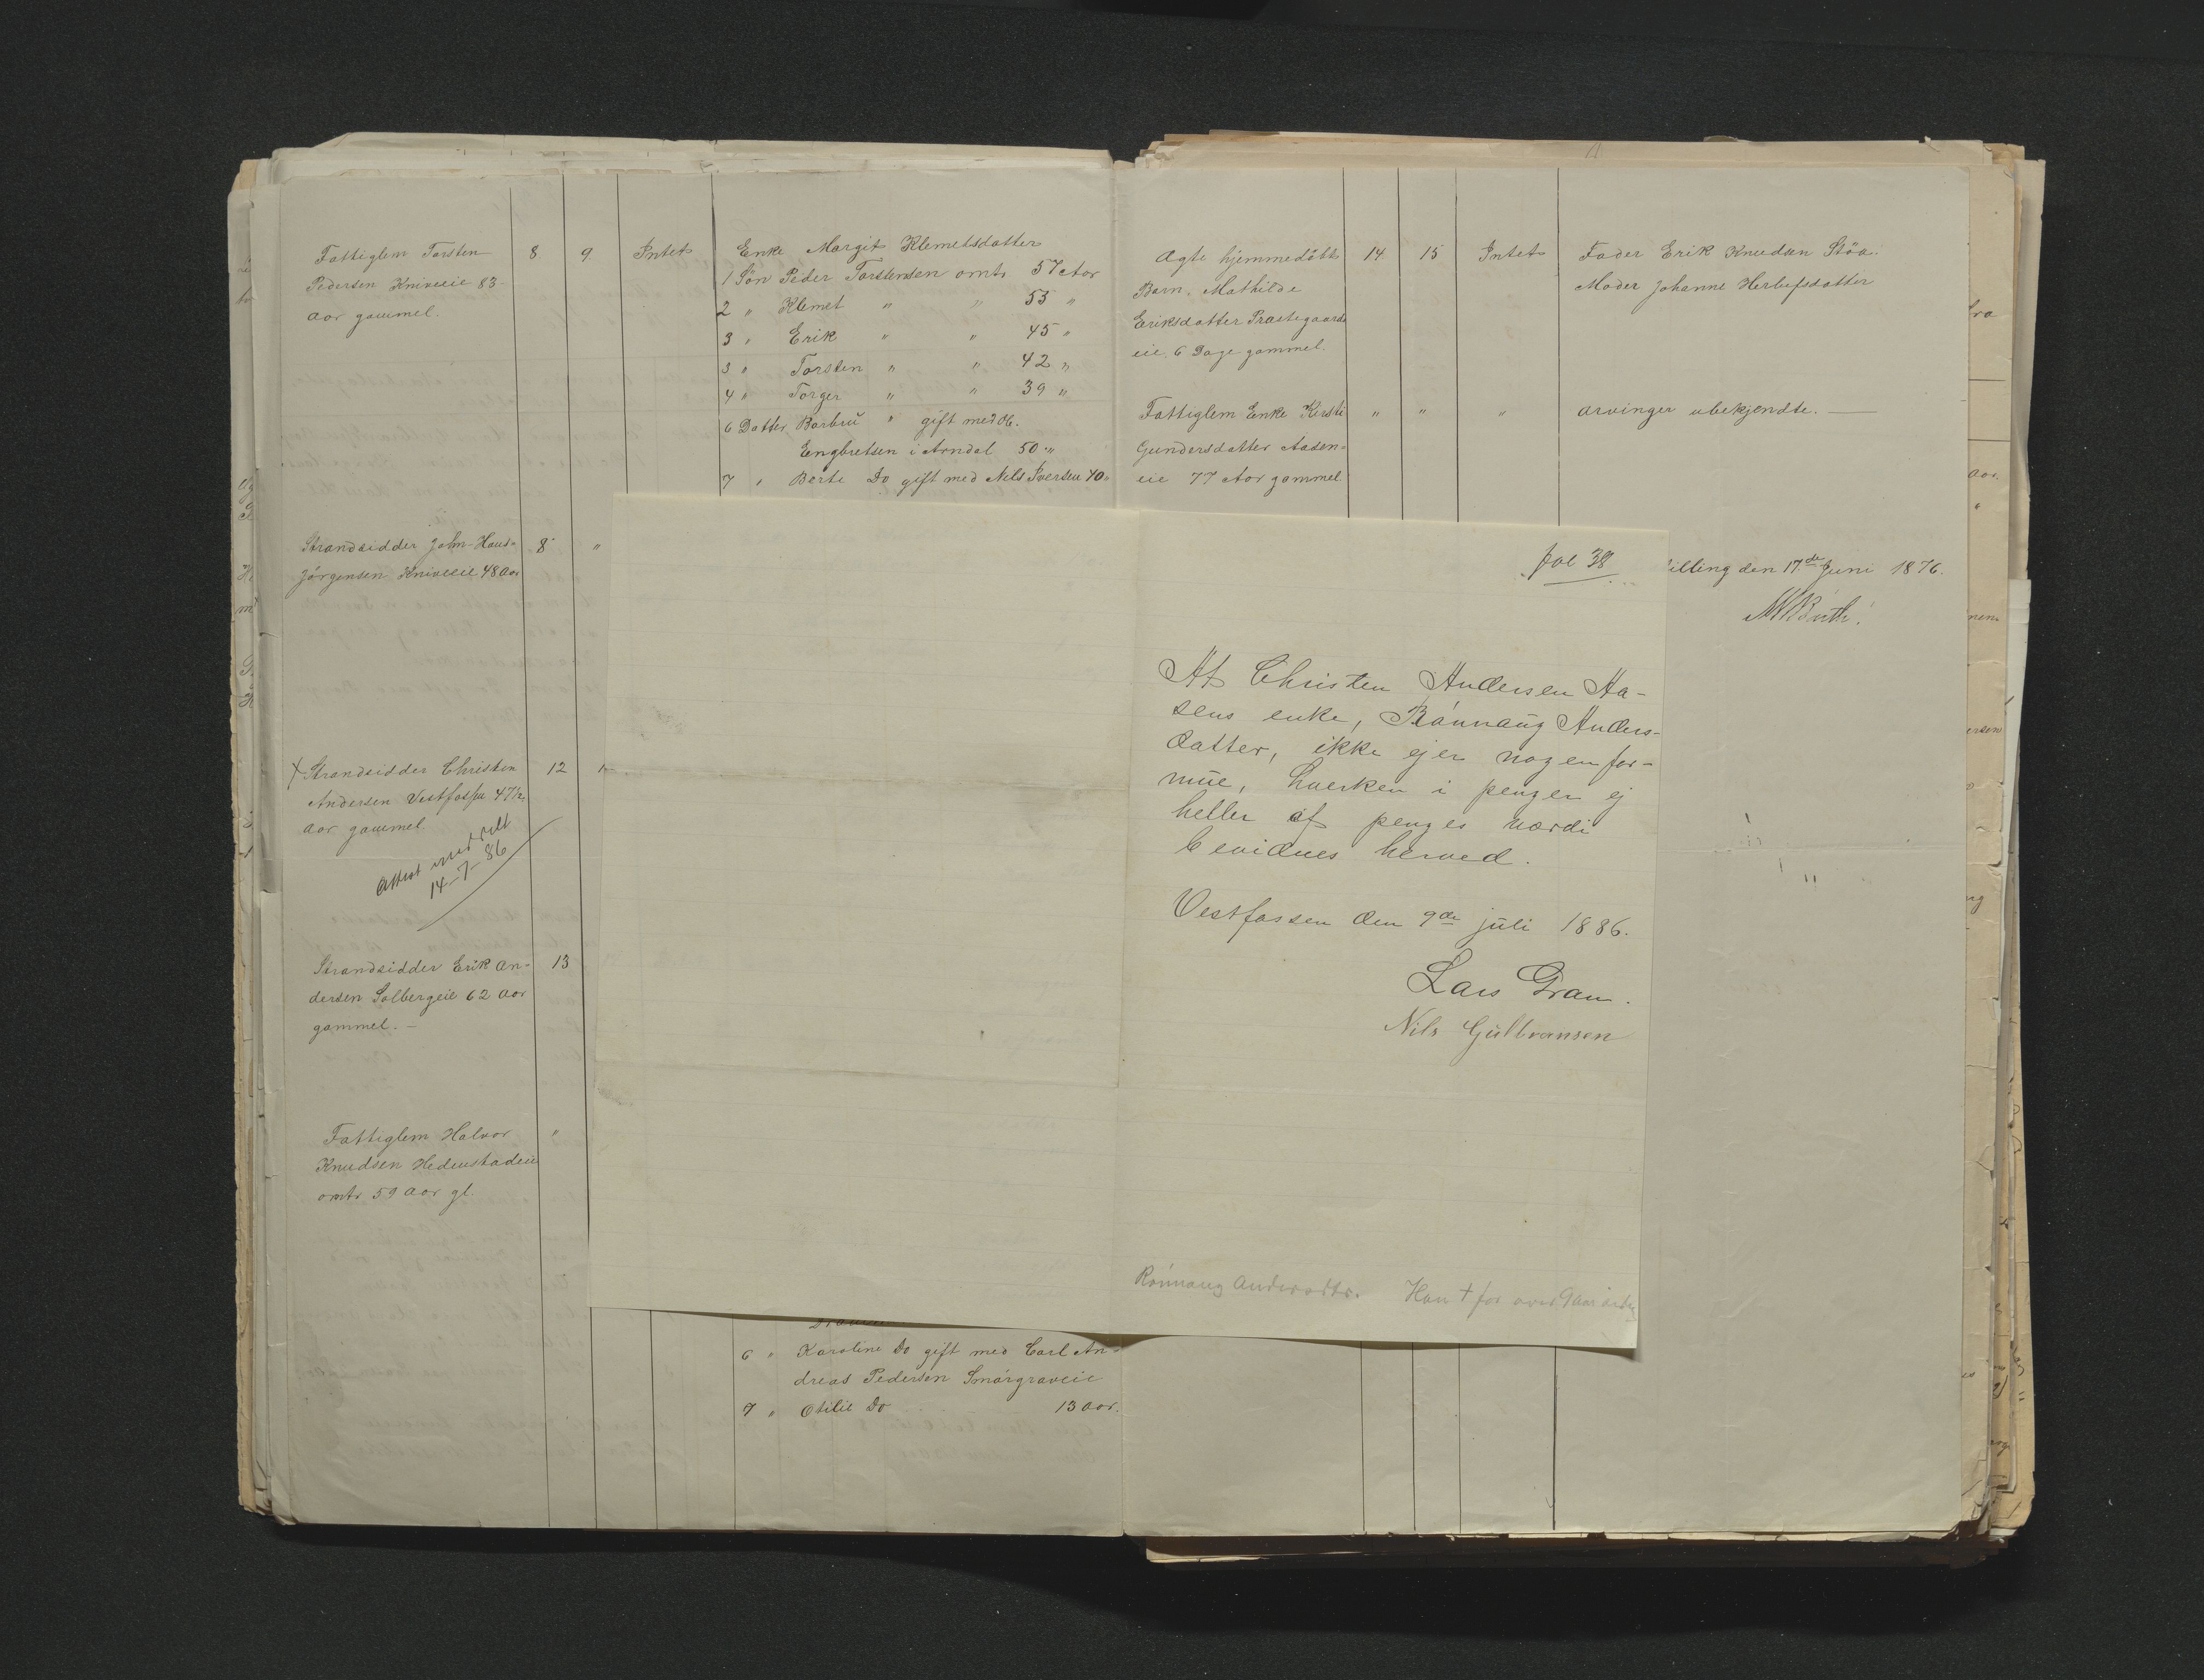 Fattiglem Torsten
Pedersen Kniveeie 83
aar gammel.
8 9 Intet
Enke Margit Klemetsdatter
1 Søn Peder Torstensen omtr. 57 Aar
2 " Klemet " " 53 "
3 " Erik " " 45 "
3 " Torsten " " 42 "
4 " Torger " " 39 "
6 Datter Barbru " gift med
Engbretsen i Arndal 50 "
7 " Berte Do gift med Nils Iversen 40 "
Strandsidder John Hans-
Jörgensen Kniveeie 48 Aar
8 "
+ Strandsidder Christen
Andersen Vestfossen 47½
aar gammel
12
Attest meddelt
14-7-86
Strandsidder Erik An-
dersen Solbergeie 62 aar
gammel. —
13
Fattiglem Halvor
Knudsen Hedenstadeie
omtr 59 aar gl.
"
6 " Karoline Do gift med Carl An-
dreas Pedersen Smörgraveie
7 " Otilie Do 13 aar.
Ægte hjemmedöbt
Barn. Mathilde
Eriksdatter Præstegaards
eie, 6 Dage gammel.
14 15 Intet
Fader Erik Knudsen Stöa.
Moder Johanne Herlufsdatter
Fattiglem Enke Kirsti
Gundersdatter Aasen-
eie 77 Aar gammel
" " "
arvinger ubekjendte. —
illing den 17de Juni 1876.
fol 38
At Christen Andersen Aa-
sens enke, Rönnaug Anders-
datter, ikke ejer nogen for-
mue, hverken i penger ej
heller af penges værdi
bevidnes herved.
Vestfossen den 9de juli 1886.
Lars Gram.
Nils Gulbransen
Rönnaug Andersdtr. Han † for over 9 aar siden